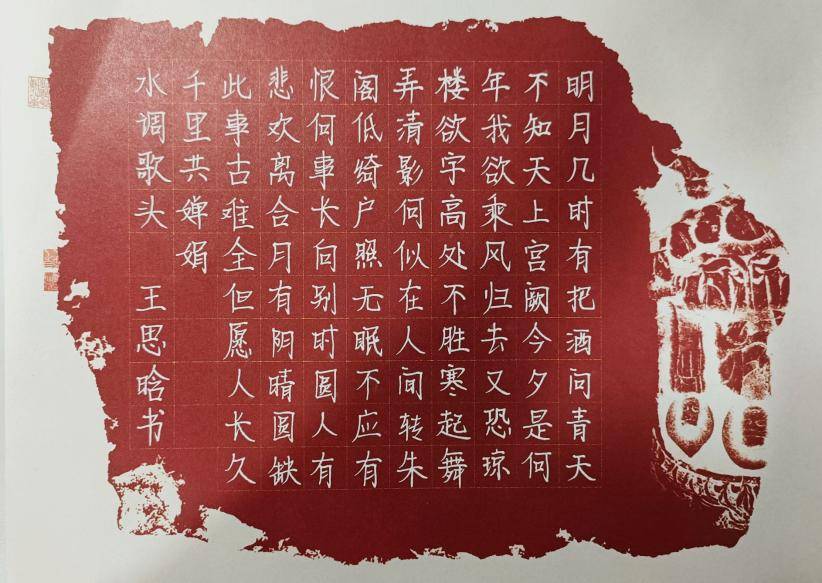 明月几时有把酒问青天
不知天上宫阙今夕是何
年我欲乘风归去又恐琼
楼欲宇高处不胜寒起舞
弄清影何似在人间转朱
阁低绮户照无眠不应有
恨何事长向别时圆人有
悲欢离合月有阴晴圆缺
此事古难全但愿人长久
千里共婵娟
水调歌头 王思晗书